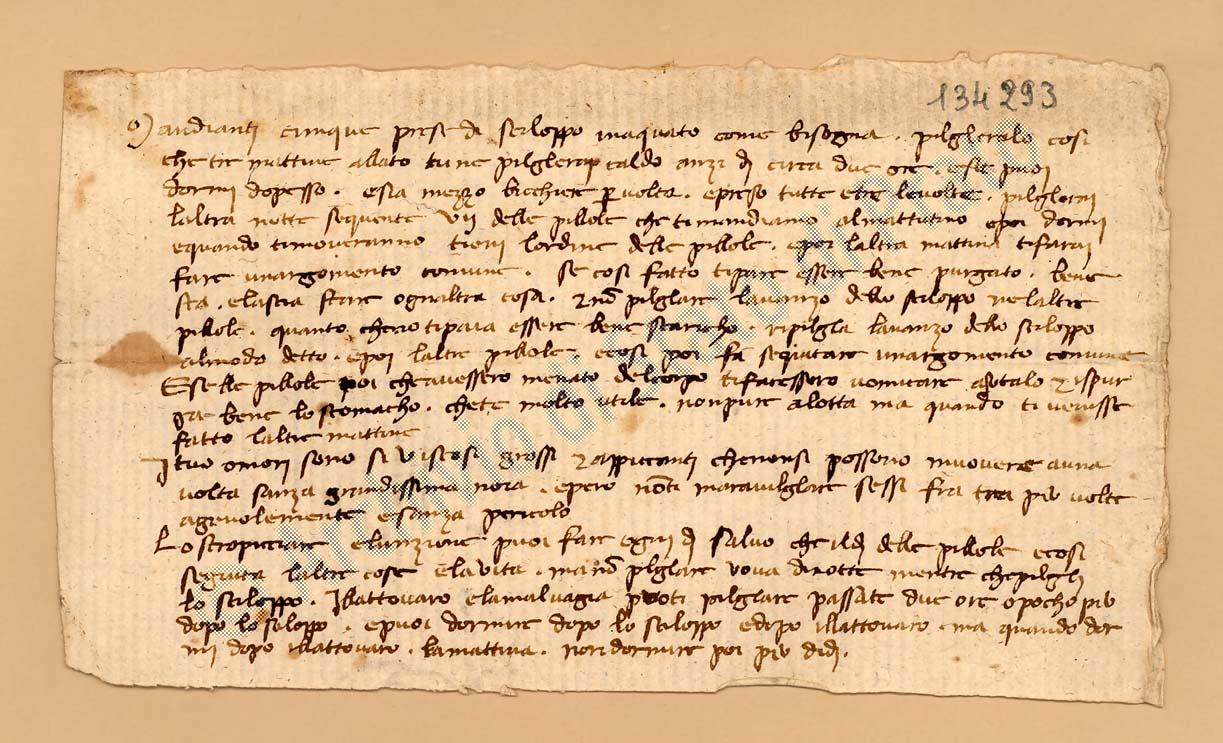 134293
Mandianti cinque prese di sciloppo inaquato come bisogna. pilgleralo cosi
che tre mattine allato tu ne pilglerai caldo anzi di circa due ore. esse puoi
dormi dopesso. e sia mezzo bicchiere per volta. epreso tutte etre levolte. pilglerai
laltra notte sequente vij delle pillole che timandiamo almattutino epoi dormi
equando timoveranno tieni lordine delle pillole. epoi laltra mattina tifarai
fare unargomento comune. se cosi fatto tipare essere bene purgato. bene
sta. elascia stare ognaltra cosa. e non pilglare lavanzo dello sciloppo nelaltre
pillole. quanto chenotipaia essere bene scaricho. ripilgla lavanzo dello sciloppo
almodo detto. epoi laltre pillole. ecosi poi fa sequitare unargomento comune
Esselle pillole poi cheavessero menato delcorpo tifacessero vomicare aiutalo e ispur
ga bene lo stomacho. chete molto utile. nonpure alotta ma quando ti venisse
fatto laltre mattine
I tuo omori sono si viscosi grossi e appiccanti chenonsi possono muovere auna
volta sanza grandissima noia. epero nonti maravilglare sessi fra tra piu volte
agevolemente esanza pericolo
Lo stropicciare elunzione puoi fare ogni di salvo che il di delle pillole ecosi
seguita laltre cose ella vita. ma non pilglare vova dinotte mentre chepilgli
lo sciloppo. Illattovaro elamalvagia puoti pilglare passate due ore opocho piu
dopo lo sciloppo. epuoi dormire dopo lo sciloppo edopo illattovaro. ma quando dor
mi dopo illattovaro. lamattina. non dormire poi piu didi.